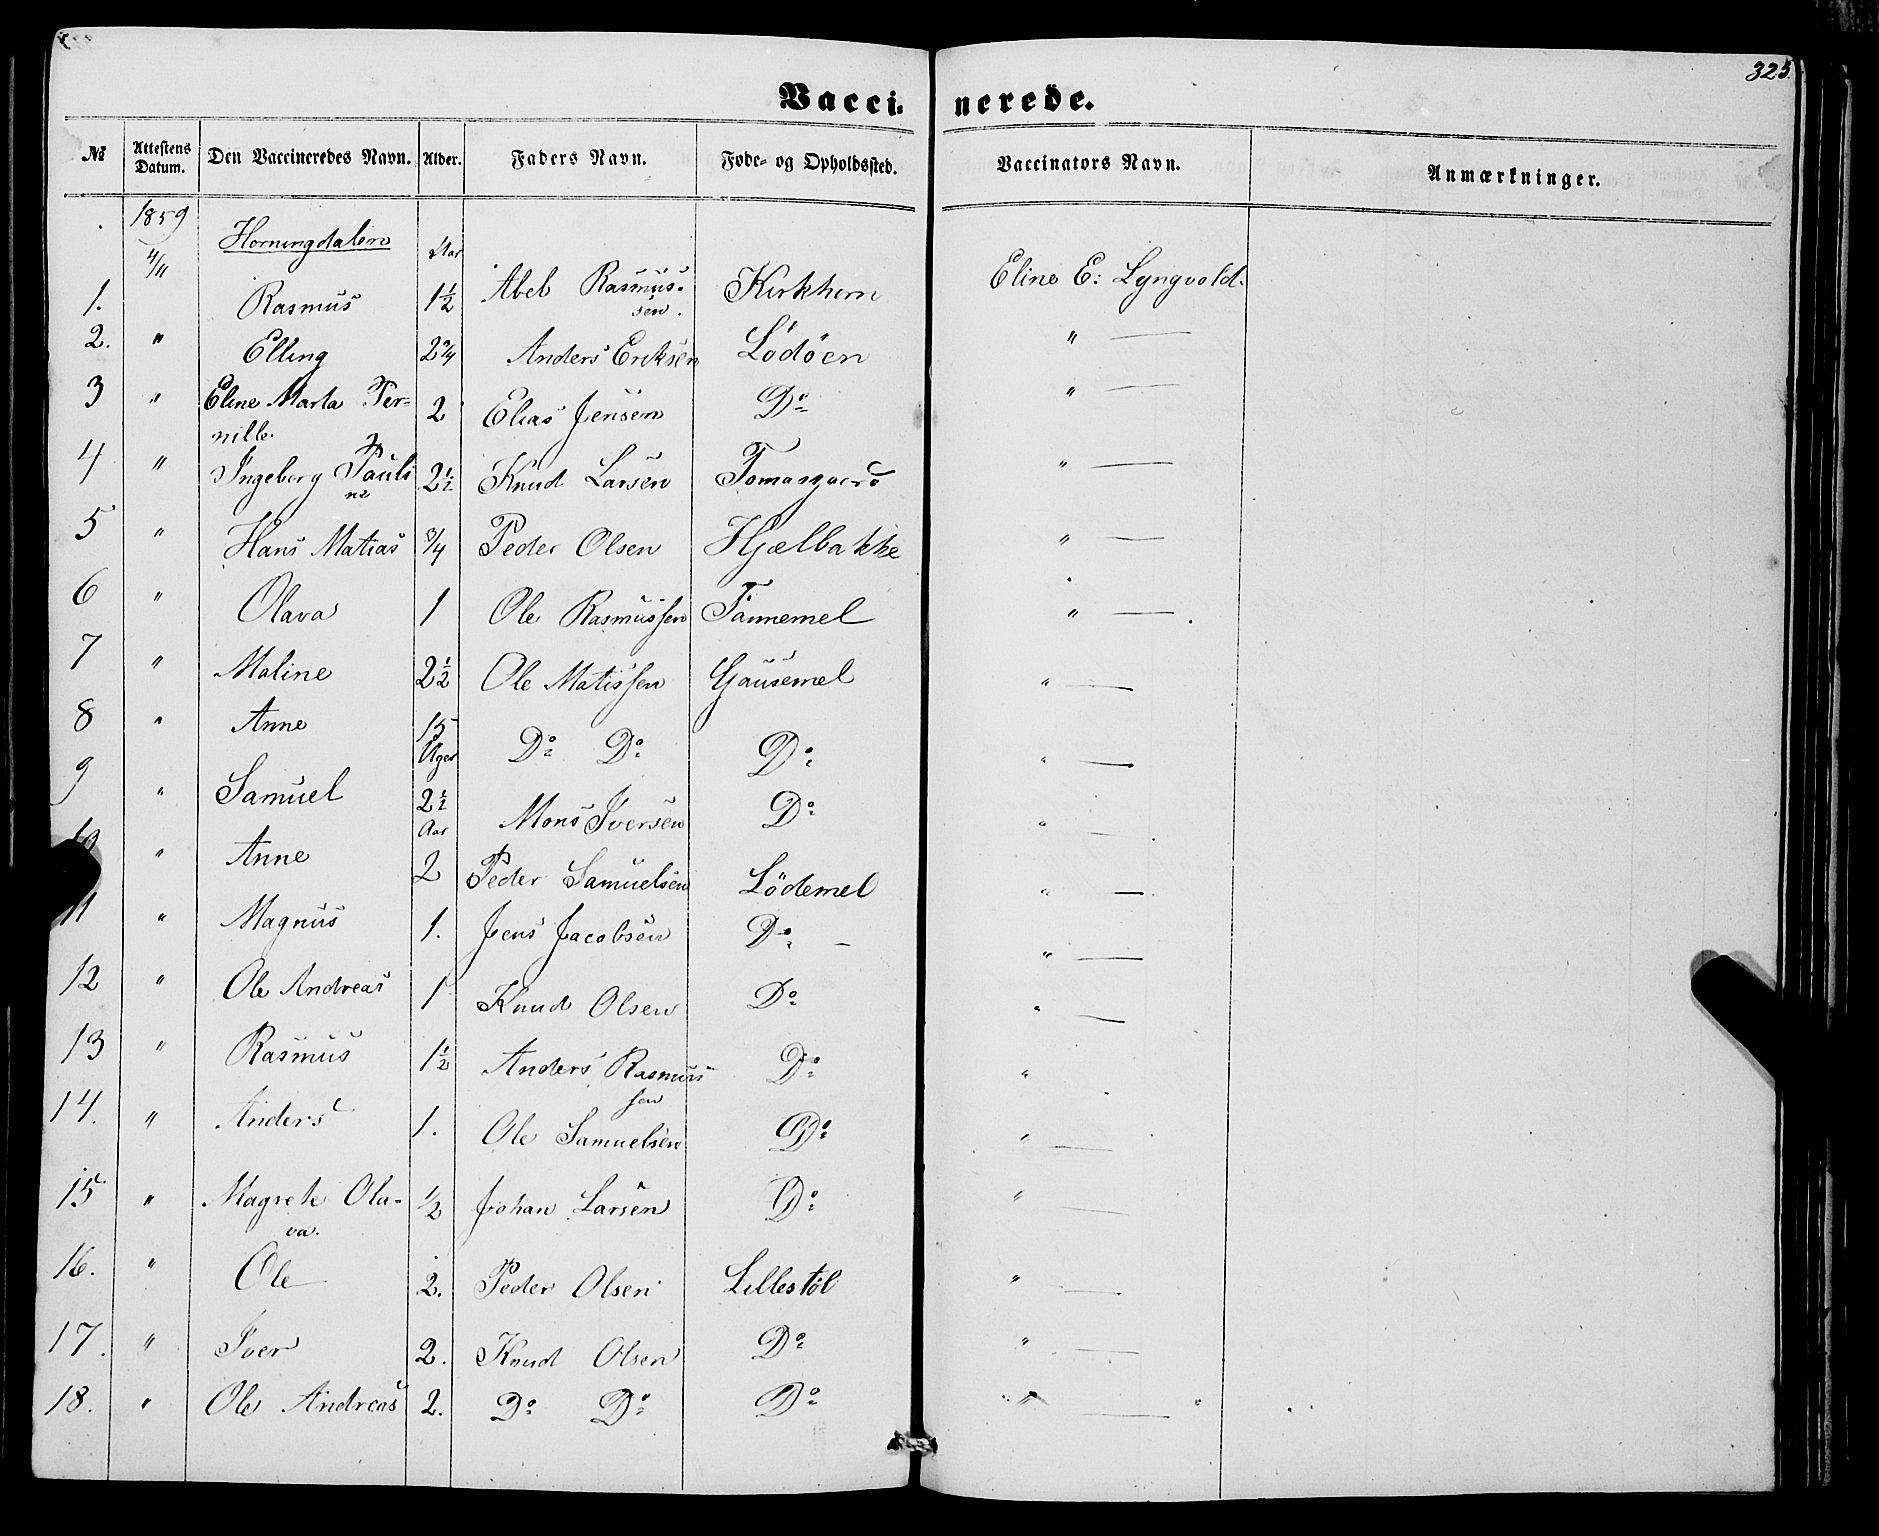 325.
Vaccinerede.
№ Attestens Datum. Den Vaccineredes Navn. Alder. Faders Navn. Føde- og Opholdssted. Vaccinators Navn. Anmærkninger.
1859 Horningdalen Aar
4/11
1. Rasmus 1½ Abel Rasmus- Kirkhorn Eline E: Lyngvold.
sen.
2. " Elling 2¾ Anders Eriksen Lødøen " —
3 " Eline Marta Per= 2 Elias Jensen Do " —
nille.
4 " Ingeborg Pauli 2½ Knud Larsen Tomasgaard " —
ne
5 " Hans Matias ¾ Peder Olsen Hjælbakke " —
6 " Olava 1 Ole Rasmussen Tannemel " — .
7 " Maline 2½ Ole Matissen Gausemel " —
8 " Anne 15 Do Do Do " —
Uger
9 " Samuel 2½ Mons Iversen Do " —
Aar
10 " Anne 2 Peder Samuelsen Lødemel " —
11 " Magnus 1. Jens Jacobsen Do - " —
12 " Ole Andreas 1 Knud Olsen Do " —
13 " Rasmus 1½ Anders Rasmus Do "
sen
14. " Anders 1. Ole Samuelsen Do " —
15 " Magrete Ola- ½ Johan Larsen Do " —
va.
16. " Ole 2. Peder Olsen Lillestøl " —
17. " Iver 2. Knud Olsen Do " —
18. " Ole Andreas 2. Do Do Do " — "